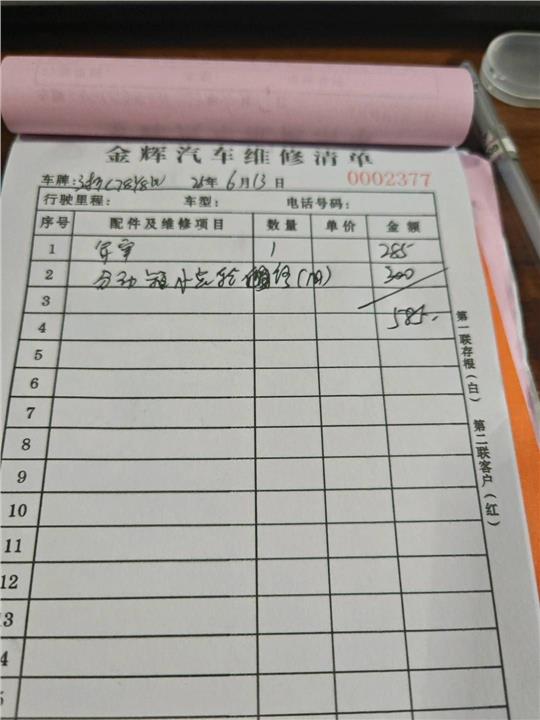 金辉汽车维修清单
车牌: 25年 6月13日 0002377
行驶里程: 车型: 电话号码:
序号 配件及维修项目 数量 单价 金额
1 年审 1 285
2 300
3
4 585.
5
6
7
8
9
10
11
12
13
4
5
第一联存根(白) 第二联客户(红)